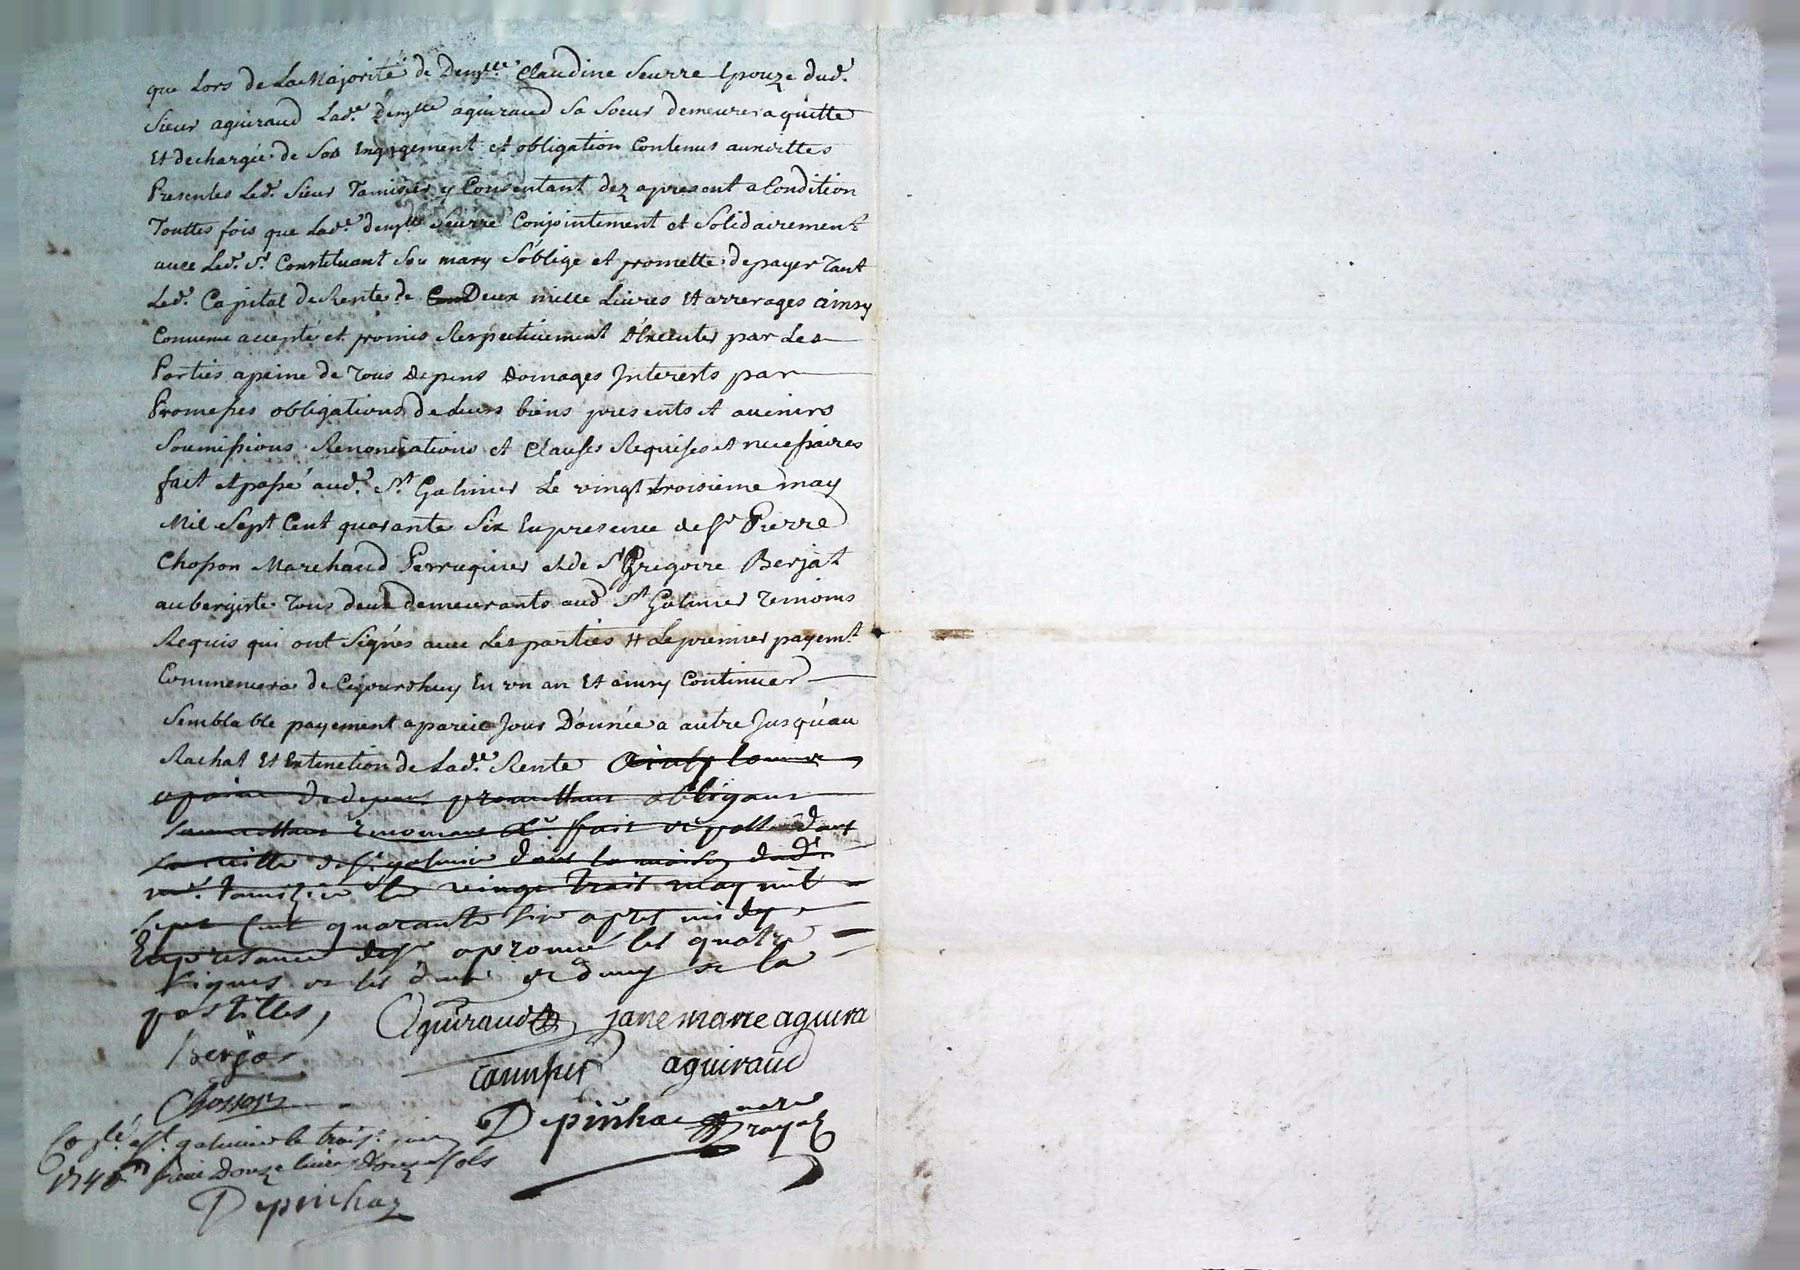 que Lors de La Majorité de Demlle Claudine Seurre Epouze dud.
Sieur aguiraud Lade Demlle aguiraud Sa Soeur demeurera quitte
Et dechargée de Son Engagement et obligation Contenus auxdittes
Presentes Led. Sieur Tamisier y Consentant dez apresent a Condition
Touttes fois que Lade demlle Seurre Conjointement et Solidairement
avec Led. Sr Constituant Son mary S'oblige et promette de payer Tant
Led. Capital de Rente de Deux mille Livres Et arrerages ainsy
Convenu accepté et promis Respectivement D'executer par Les
Parties apeine de Tous Depens Domages Interests par
Promesses obligations de Leurs biens presents et avenirs
Soumissions Renonciations et Clauses Requises et necessaires
fait et passé aud. St Galmier Le vingt troisieme may
Mil Sept Cent quarante Six En presence de Sr Pierre
Chosson Marchand Perruquier et de Sr Gregoire Berjat
aubergiste Tous deux demeurants aud St Galmier Temoins
Requis qui ont Signés avec Les parties Et Le premier payemt
Commencera de Cejourdhuy En un an Et ainsy Continuer
Semblable payement a pareil Jour D'année a autre Jusqu'au
Rachat Et Extinction de Lade Rente
a peine de depens promettans obligeans
Soumettans Renoncans Et fait et passé dans
La ville de St galmier dans la maison dud.
Tamizier le vingt trois may mil
Sept Cent quarante Six apres midy
En presance des aprouvé les quatre
Lignes et les et demy et la
postilles,
Aguiraud jane marie aguira
Berjat
Tamisier aguiraud
Chosson
Depinhac
Conlé a St galmier le trois juin
1746 Receu Douze Livres Douze Sols
Depinhac